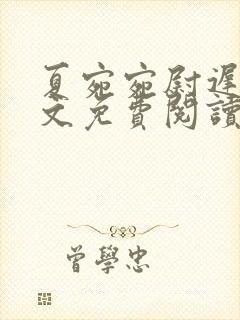 夏宛宛尉遲
文免費閱讀
曾學忠